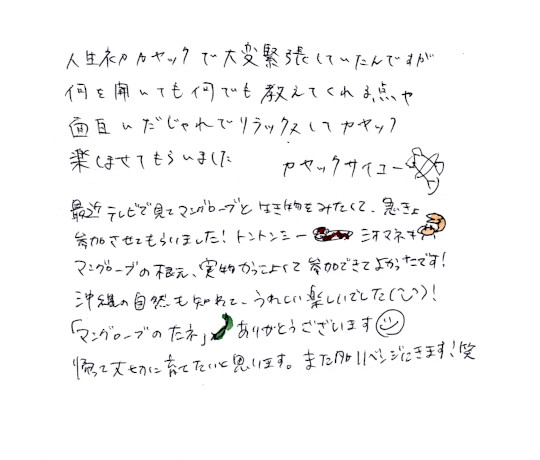 人生初カヤックで大変緊張していたんですが
何を聞いても何でも教えてくれる点や
面白いだじゃれでリラックスしてカヤック
楽しませてもらいました
カヤックサイコー
最近テレビで見てマングローブと生き物をみたくて、急きょ
参加させてもらいました!トントンミー シオマネキ
マングローブの根元、実物がっこよくて参加できてよかったです!
沖縄の自然も知れて、うれしい楽しいでした!
「マングローブのたネ」ありがとうございます
帰って大切に育てたいと思います。また リベンジにきます!笑